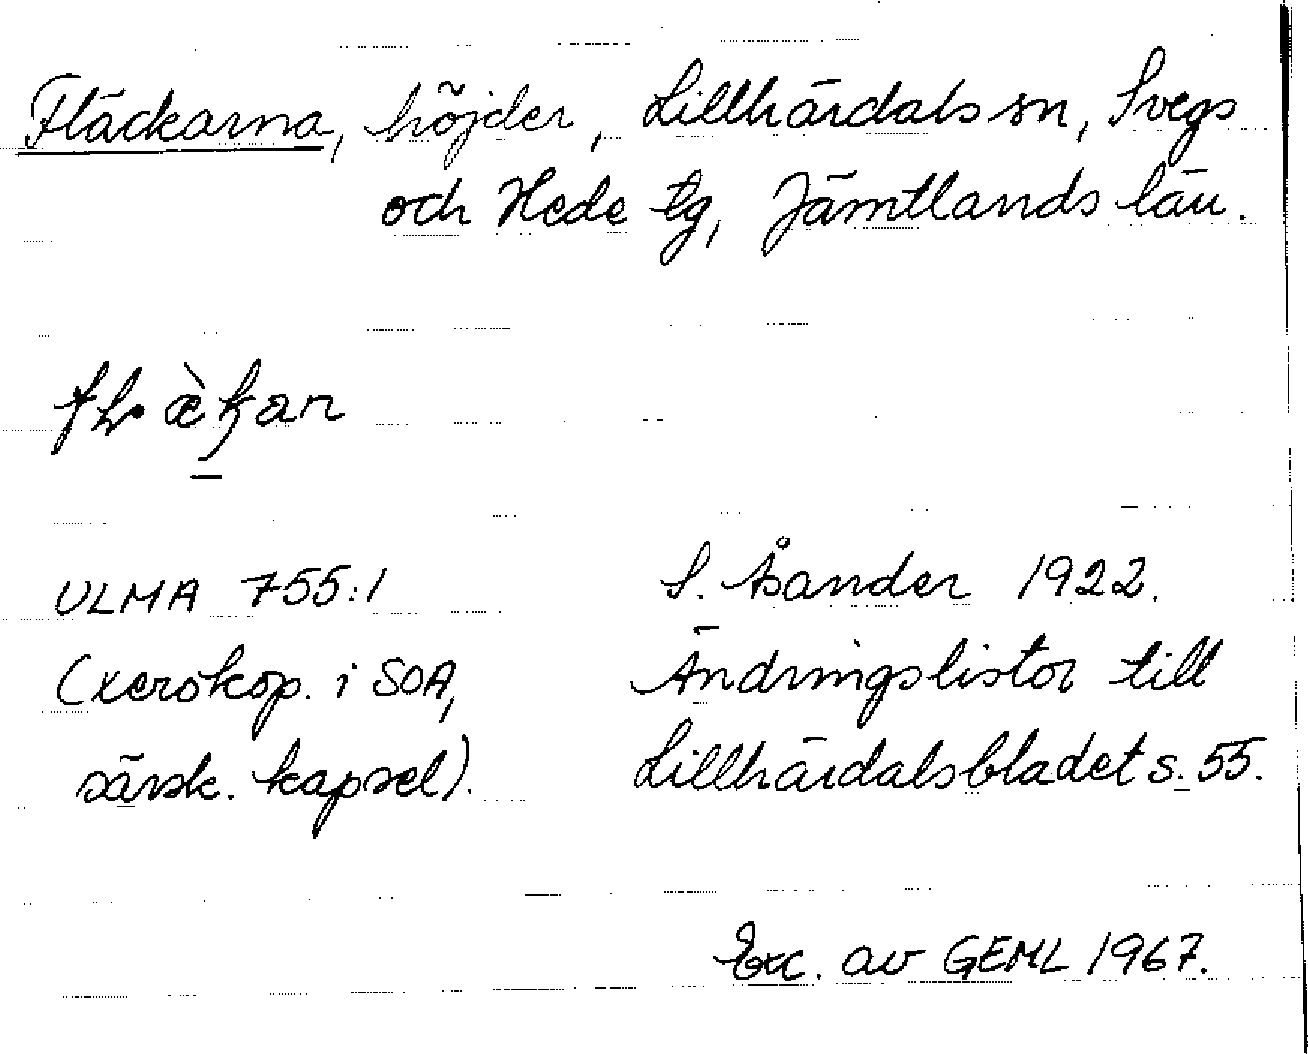 Fläckarna, höjder, Lillhärdals sn, Svegs
och Hede tg, Jämtlands län.
ULMA 755:1
S. Åsander 1922.
(xerokop. i SOA,
Ändringslistor till
särsk. kapsel).
Lillhärdalsbladet s. 55.
Exc. av GEML 1967.